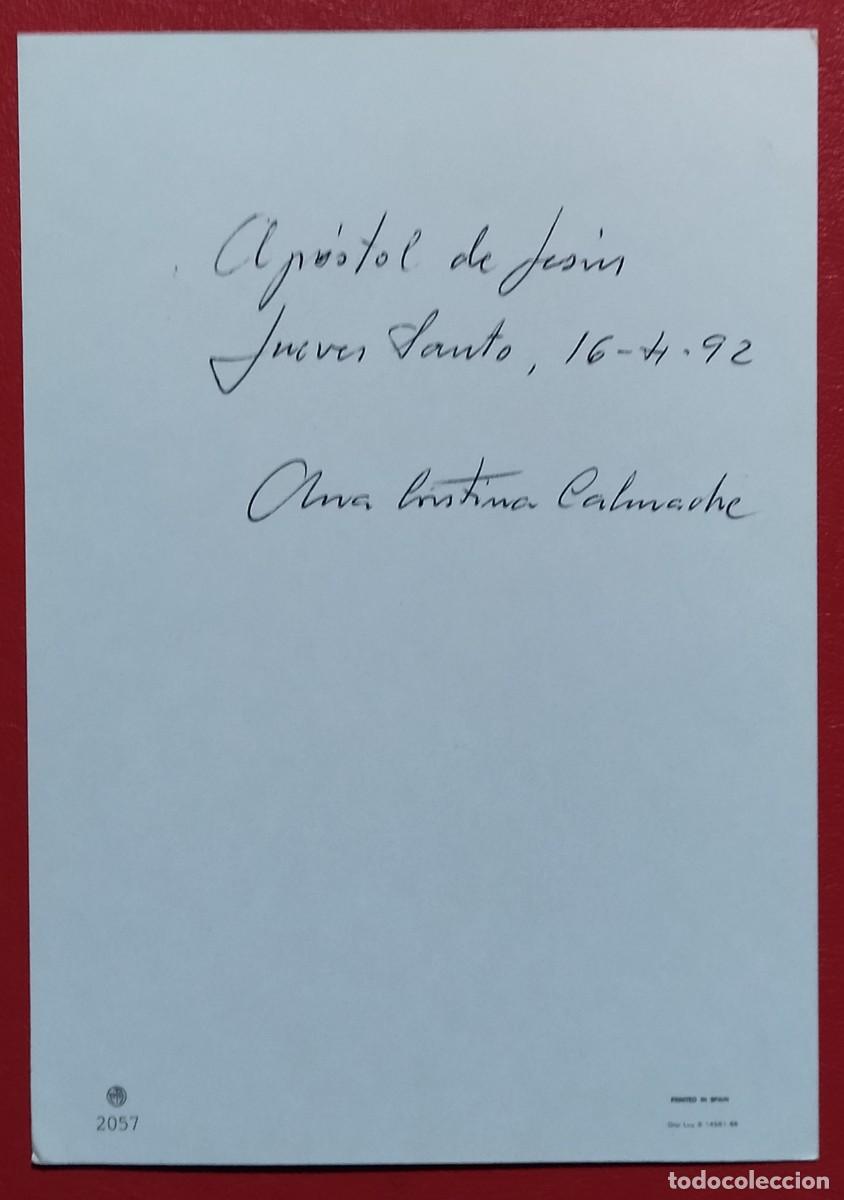 Apóstol de Jesús
Jueves Santo, 16-4-92
Ana Cristina Calmache
2057
PRINTED IN SPAIN
todocoleccion